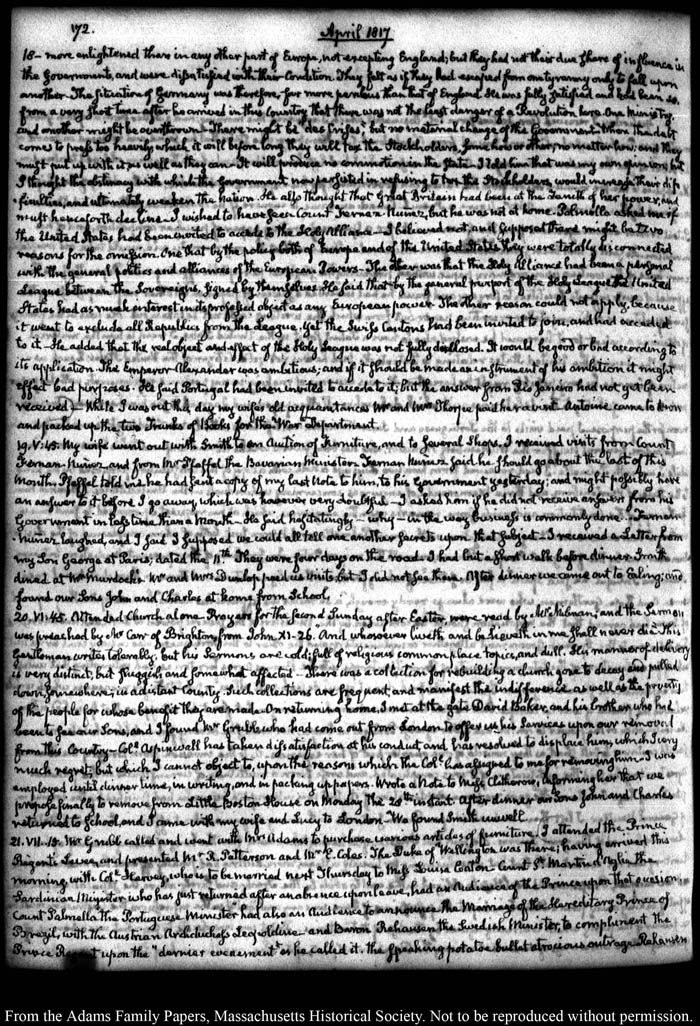 172.
April 1817
18— more enlightened than in any other part of Europe, not excepting England; but they had not their due share of influence in
the Governments, and were dissatisfied with their Condition. They felt as if they had escaped from one tyranny only to fall upon
another. The situation of Germany was therefore, far more perilous than that of England. He was fully satisfied and had been so,
from a very short time after he arrived in this Country that there was not the least danger of a Revolution here. One Ministry
and another might be overthrown— There might be "des Crises," but no material change of the Government. When the debt
comes to press too heavily, which it will before long they will tax the Stockholders, some how or other, no matter how; and they
must put up with it as well as they can— It will produce no commotion in the State— I told him that was my own opinion; but
I thought the obstinacy with which the Government now persisted in refusing to tax the Stockholders, would increase their dif-
ficulties, and ultimately weaken the Nation. He also thought that Great Britain had been at the Zenith of her power, and
must henceforth decline— I wished to have seen Count Fernan Nunez, but he was not at home. Palmella asked me if
the United States had been invited to accede to the Holy Alliance— I believed not, and supposed there might be two
reasons for the omission. One that by the policy both of Europe and of the United States they were totally disconnected
with the general politics and alliances of the European Powers— The other was that the Holy Alliance had been a personal
League between the Sovereigns, signed by themselves. He said that by the general purport of the Holy League the United
States had as much interest in its professed object as any European power. The other reason could not apply, because
it went to exclude all Republics from the League. Yet the Swiss Cantons had been invited to join, and had acceded
to it— He added that the real object and effect of the Holy League was not fully disclosed. It would be good or bad according to
its application. The Emperor Alexander was ambitious; and if it should be made an instrument of his ambition it might
effect bad purposes. He said Portugal had been invited to accede to it; but the answer from Rio Janeiro had not yet been
received— While I was out this day my wife's old acquaintances Mr and Mrs Thorpe paid her a visit. Antoine came to town
and packed up the two Trunks of Books for the War Department.
19. V:45. My wife went out with Smith to an Auction of Furniture, and to several Shops. I received visits from Count
Fernan-Nunez, and from Mr Pfeffel the Bavarian Minister. Fernan Nunez said he should go about the last of this
Month. Pfeffel told me he had sent a copy of my last Note to him, to his Government yesterday; and might possibly have
an answer to it before I go away, which was however very doubtful— I asked him if he did not receive answers from his
Government in less time than a Month— He said hesitatingly— why— in the way business is commonly done.— Fernan
Nunez laughed, and I said I supposed we could all tell one another secrets upon that subject— I received a Letter from
my Son George at Paris; dated the 11th. They were four days on the road. I had but a short walk before dinner. Smith
dined at Mr Murdock's. Mr and Mrs Dunlop paid us visits but I did not see them. After dinner we came out to Ealing; and
found our Sons John and Charles at home from School.
20. VI:45. Attended Church alone— Prayers for the second Sunday after Easter, were read by Mr and the Sermon
was preached by Mr Carr of Brighton, from John XI. 26. And whosoever liveth, and believeth in me shall never die. This
Gentleman writes tolerably, but his Sermons are cold; full of religious common place topics, and dull. His manner of delivery
is very distinct, but sluggish and somewhat affected— There was a collection for rebuilding a church gone to decay and pulled
down, somewhere, in a distant County. Such collections are frequent, and manifest the indifference as well as the poverty
of the people for whose benefit they are made. On returning home, I met at the gate David Baker, and his brother who had
been to see our Sons, and I found Mr Grubb who had come out from London to offer us his services upon our removal
from this Country— Coll. Aspinwall has taken dissatisfaction at his conduct and has resolved to displace him, which I very
much regret, but which I cannot object to, upon the reasons which the Coll. has assigned to me for removing him— I was
employed until dinner time, in writing, and in packing up papers. Wrote a Note to Miss Clitherow, informing her that we
propose finally to remove from Little Boston House on Monday the 28th instant. After dinner our Sons John and Charles
returned to School, and I came with my wife and Lucy to London. We found Smith unwell.
21. VII:15. Mr Grubb called and went with Mrs Adams to purchase various articles of furniture. I attended the Prince
Regent's Levee, and presented Mr R. Patterson and Mr E. Coles. The Duke of Wellington was there; having arrived this
morning with Coll. Harvey, who is to be married next Thursday to Miss Louisa Caton— Count St. Martin d'Aglie the
Sardinian Minister who has just returned after an absence upon leave, had an Audience of the Prince upon that occasion.
Count Palmella the Portuguese Minister had also an Audience to announce the Marriage of the Hereditary Prince of
Brazil, with the Austrian Archduchess Leopoldine— and Baron Rehausen the Swedish Minister, to compliment the
Prince Regent upon the "dernier evenement" as he called it. the speaking potatoe bullet atrocious outrage. Rehausen
From the Adams Family Papers, Massachusetts Historical Society. Not to be reproduced without permission.